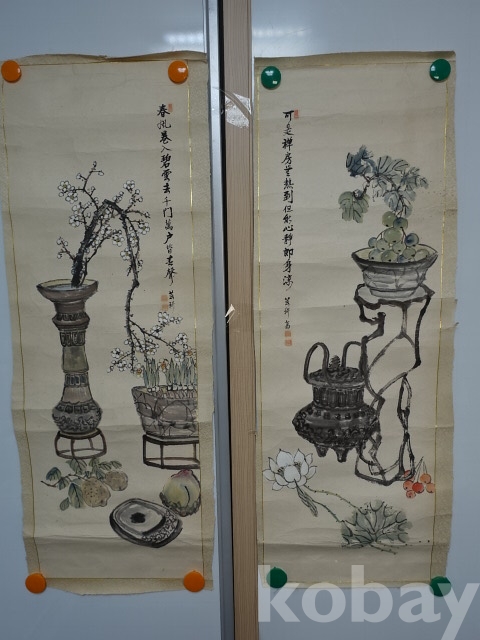 春風卷入碧雲去千门萬户皆春聲
可是禪房無熱到但能心靜即身涼
kobay